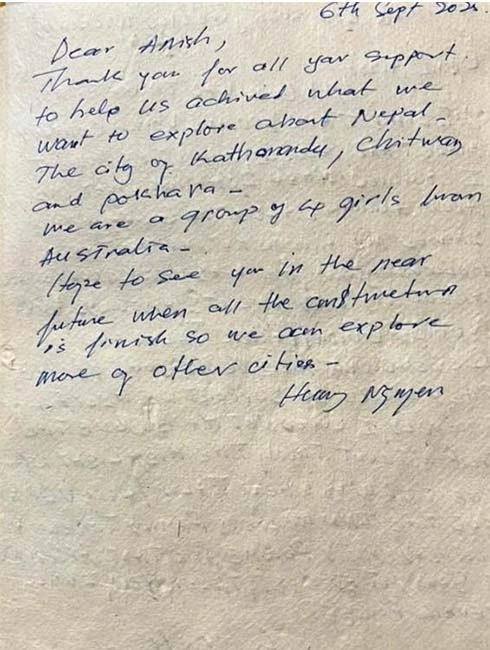 6th Sept 202
Dear Anish,
Thank you for all your support.
to help us achived what we
want to explore about Nepal-
The city of Kathmandu, Chitwan
and pokhara -
we are a group of 4 girls from
Australia -
Hope to see you in the near
future when all the construction
is finish so we can explore
more of other cities -
Nguyen